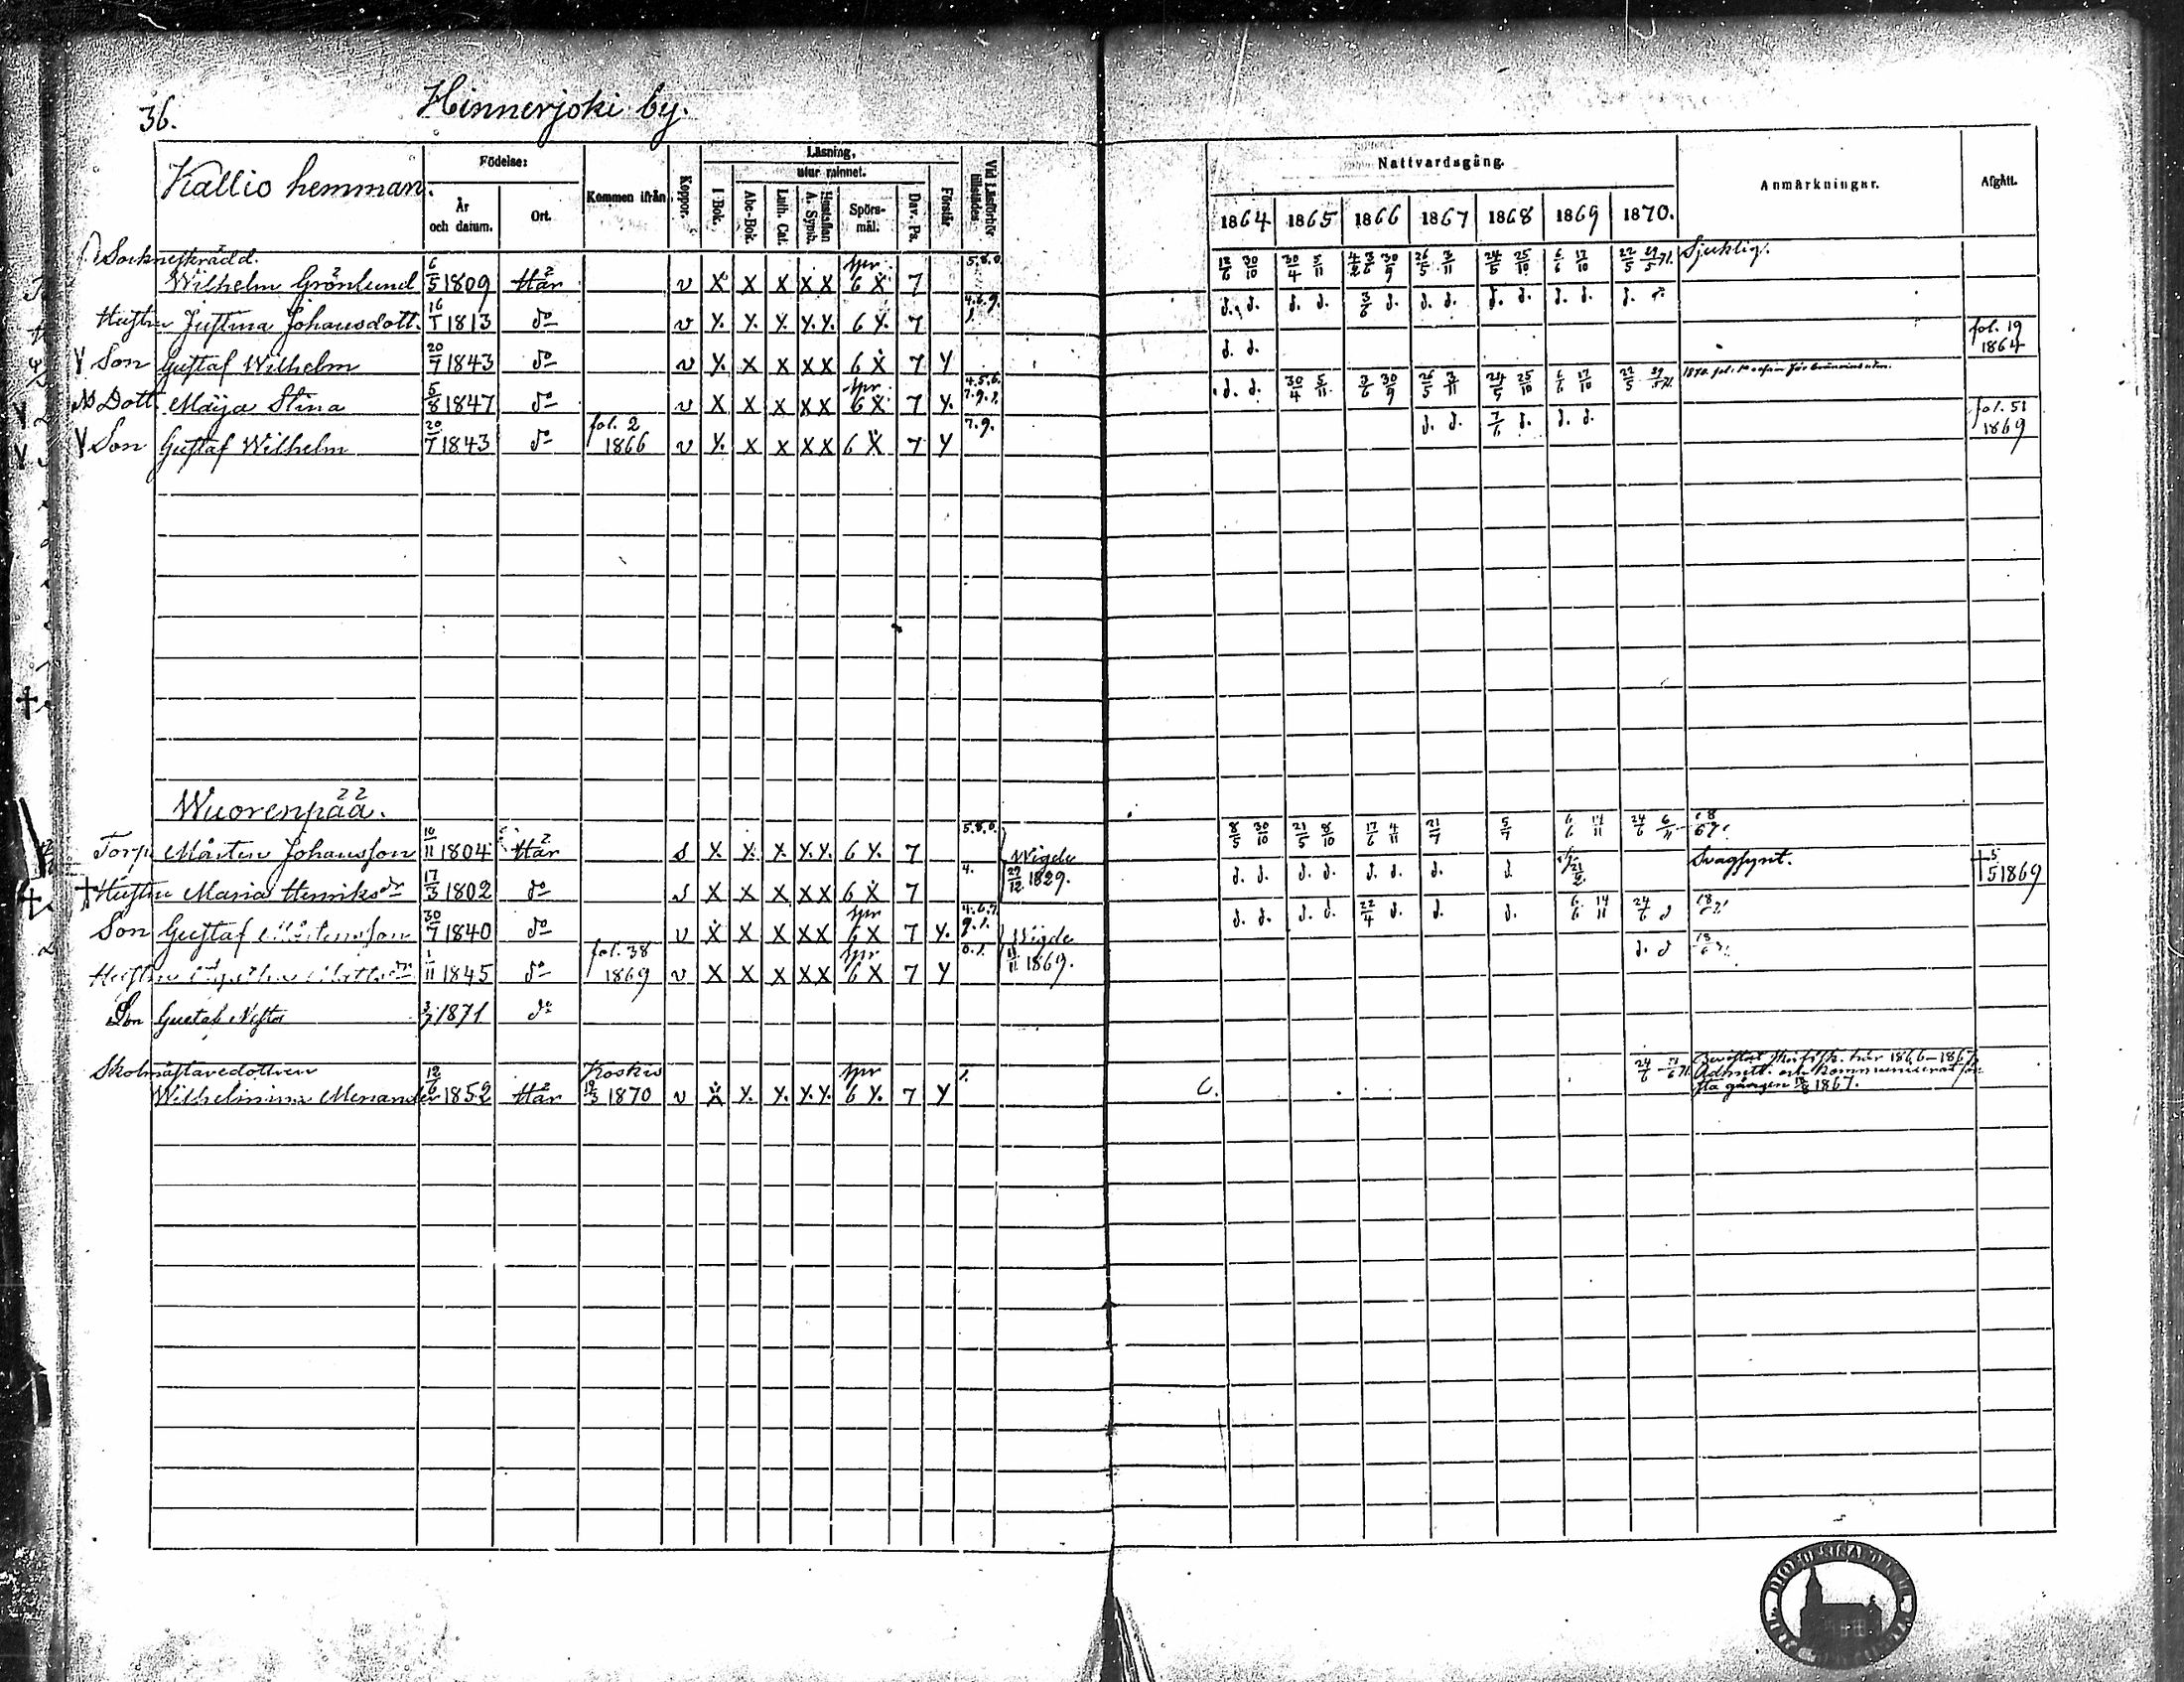 36.
Hinnerjoki by.
Kallio hemman.
Födelse:
År och datum.
Ort.
Kommen ifrån
Koppor.
Läsning,
I Bok.
utur minnet.
Abc-Bok.
Luth. Cat.
Hustaflan A. Symb.
Spörs-mål.
Dav. Ps.
Förstår
Vid Läsförhör tillstädes
Nattvardsgång.
1864 1865 1866 1867 1868 1869 1870.
Anmärkningar.
Afgått.
Sockneskrädd.
Wilhelm Grönlund 6/5 1809 Här v X X X X X spr 6 X 7 5.8.0 12/6 30/10 30/4 5/11 3/6 30/9 26/5 3/11 24/5 25/10 6/6 17/10 22/5 Sjuklig.
Hustru Justina Johansdott. 16/1 1813 do v X. X. X. X. X. 6 X. 7 4.6.9.1. d. d. d. d. 3/6 d. d. d. d. d. d. d. d. d.
Son Gustaf Wilhelm 20/7 1843 do v X. X X X X 6 X 7 Y d. d. fol. 19 1864
Dott. Maja Stina 5/8 1847 do v X X X X X spr 6 X 7 Y. 4.5.6.7.9.1. d. d. 30/4 5/11 3/6 30/9 26/5 3/11 24/5 25/10 6/6 17/10 22/5
Son Gustaf Wilhelm 20/7 1843 do fol. 2 1866 v X. X X X X 6 X 7 Y 7.9. d. d. 7/6 d. d. d. fol. 51 1869
Wuorenpää.
Torp. Mårten Johansson 10/11 1804 Här s X. X. X. X. X. 6 X. 7 5.8.0. Wigde 27/12 1829. 8/5 30/10 21/5 8/10 17/6 4/11 21/7 5/7 6/6 14/11 24/6 6/11
† Hustru Maria Henriksdr 17/3 1802 do s X X X X X 6 X 7 4. d. d. d. d. d. d. d. d. 21/2 Svagsynt. † 5/5 1869
Son Gustaf Mårtensson 30/7 1840 do v X X X X X spr 6 X 7 Y. 4.6.7.9.1. Wigde 11/11 1869. d. d. d. d. 22/4 d. d. d. 6/6 14/11 24/6 d
Hustru 1/11 1845 do fol. 38 1869 v X X X X X spr 6 X 7 Y 0.1. d. d
Son Gustaf Nestor 3/7 1871 do
Skolmästaredottren
Wilhelmina Menander 12/6 1852 Här Koskis 12/3 1870 v X X. X. X. X. spr 6 X. 7 Y 1. C. 24/6
Bevistat skriftsk. här 1866–1867.
Admitt. och kommunicerat för
sta gången 1867.